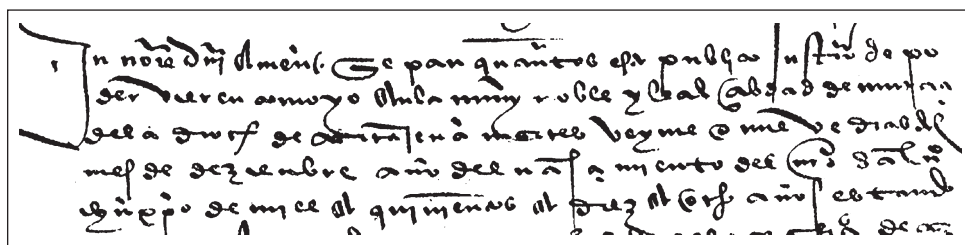 In no᷑e dñi Amen. Sepan quantos este publico Instrũ de po
der vieren como yo en la muy noble y leal çibdad de murçia
dela dioçs de cartajena martes veynte e nueve dias del
mes de dezienbre año del nasçimiento del nro salvador
ihu xpo de mill e quinientos e diez e ocho años estando